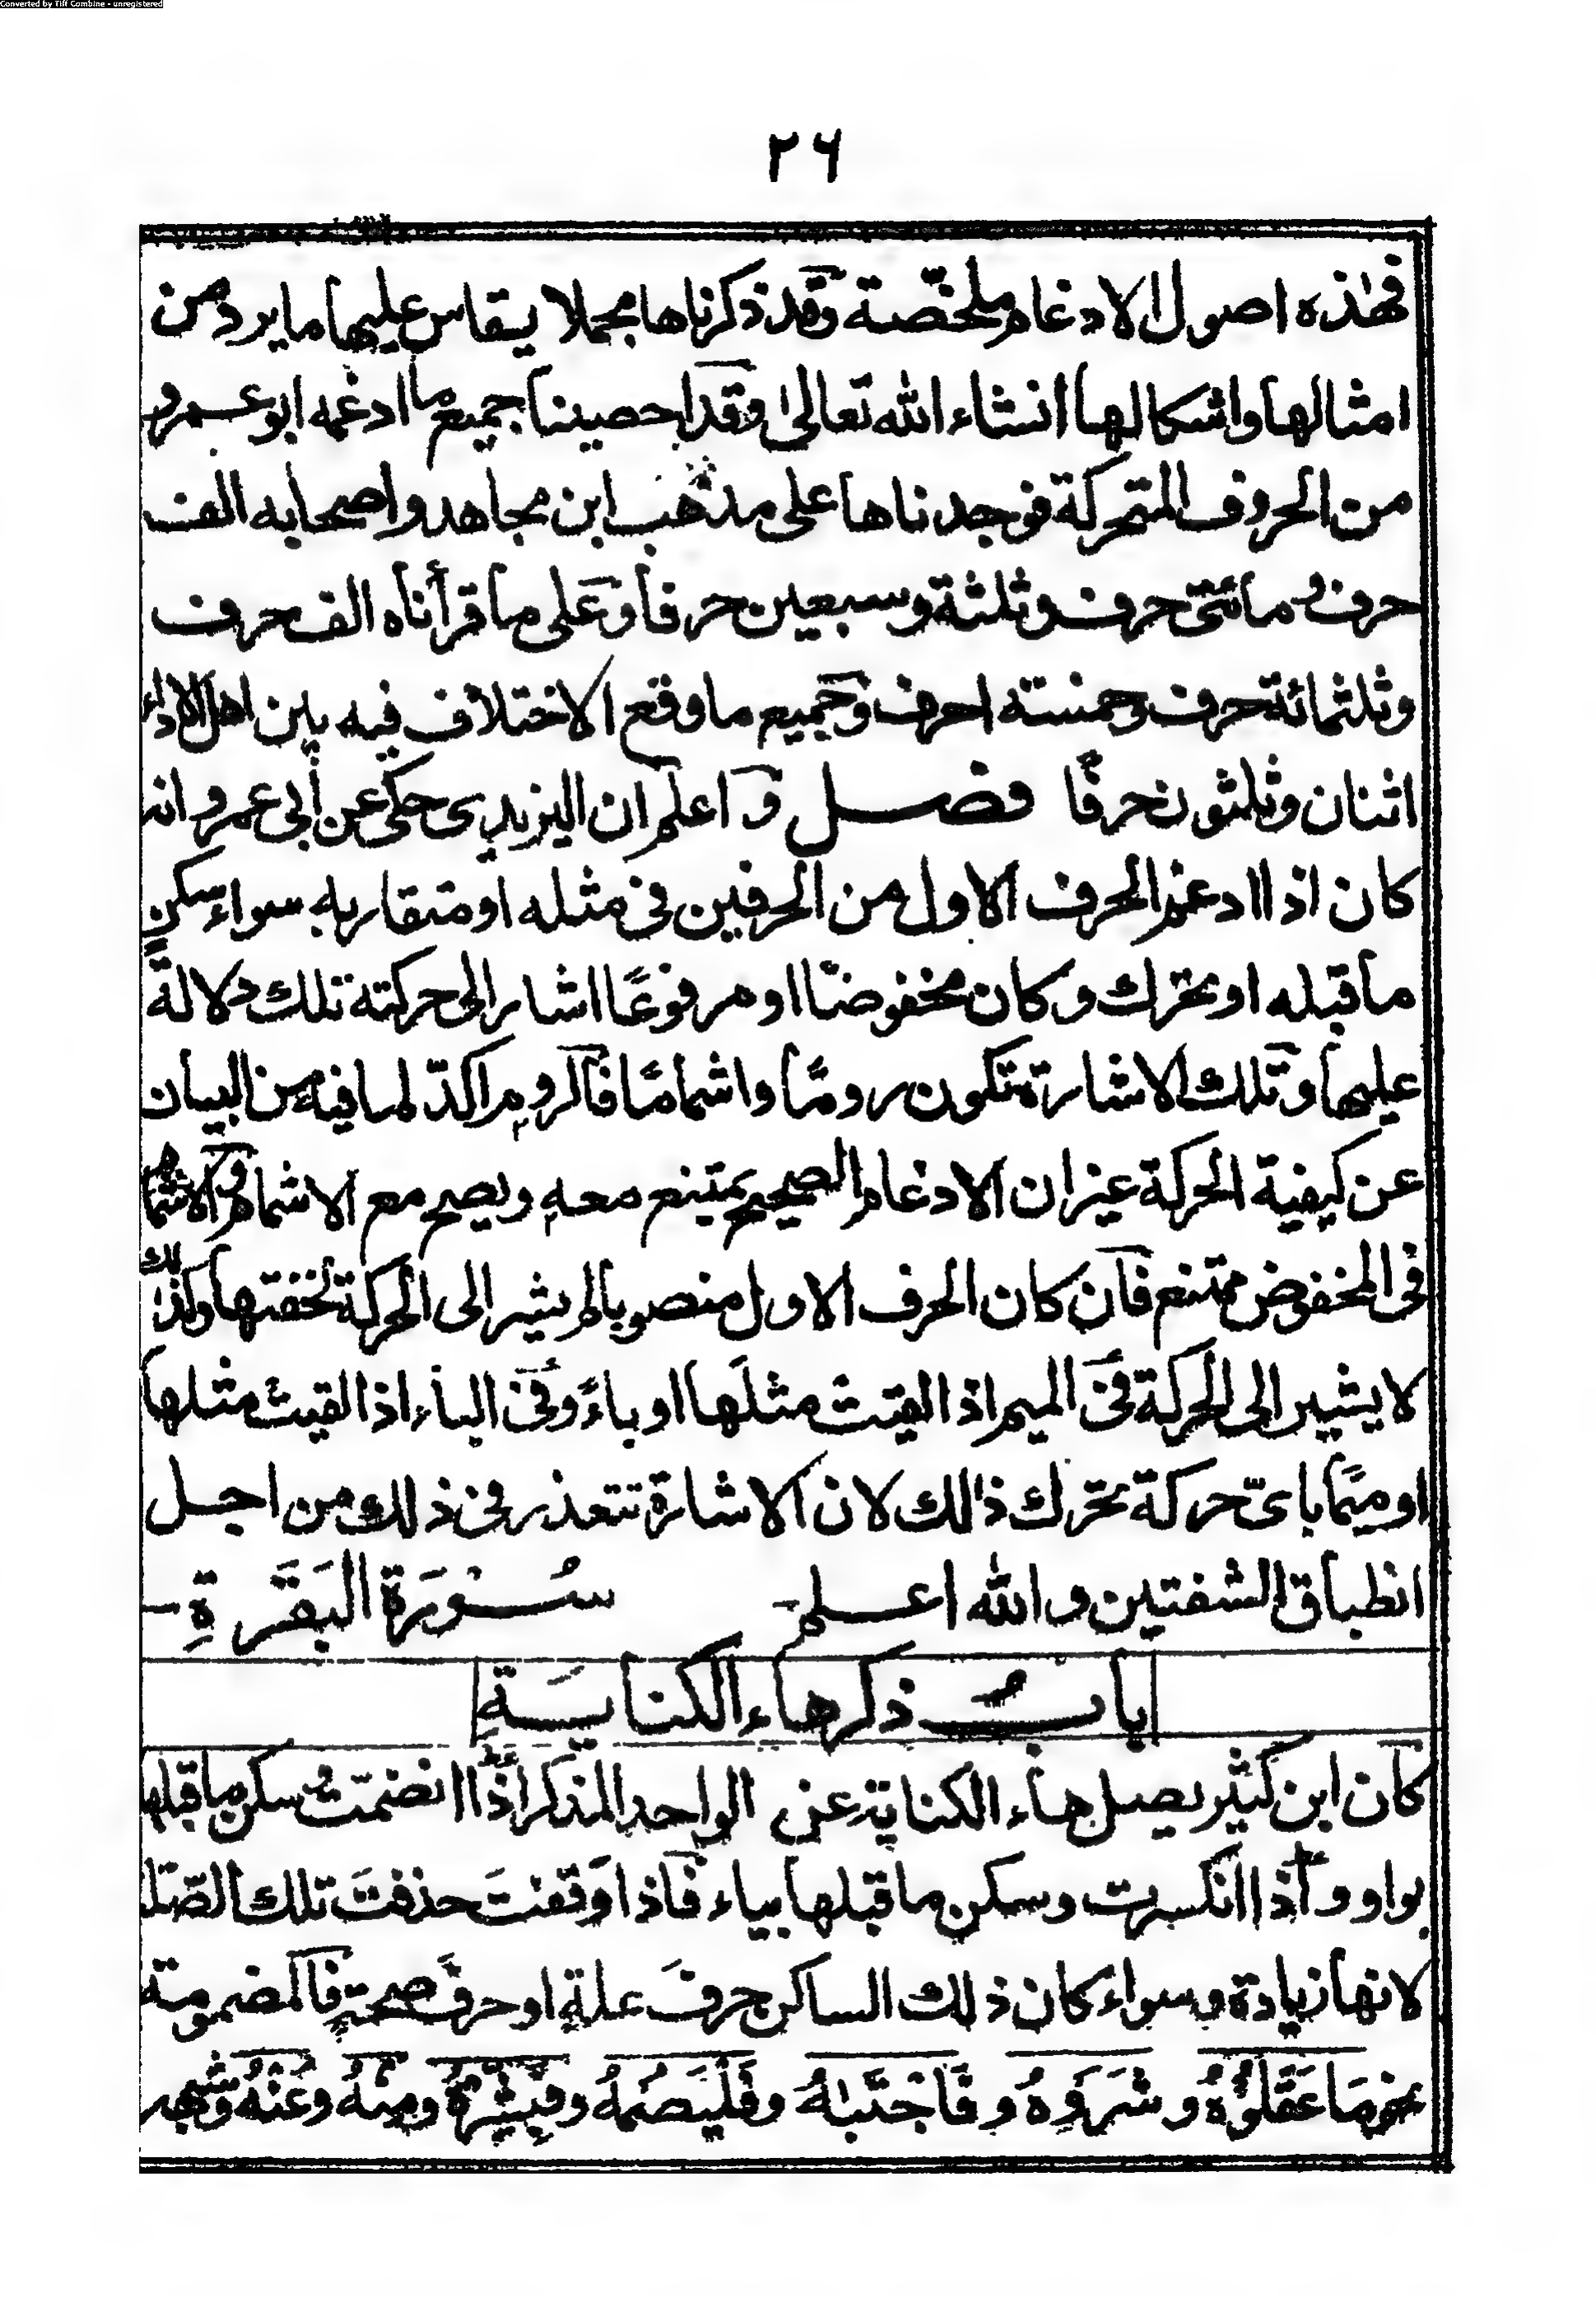 Converted by Tiff Combine - unregistered
٢٦
فهٰذه اصول الادغام ملخّصة وقد ذكرناها مجملا يقاس عليها ما يرد من
امثالها واشكالها انشاء الله تعالیٰ وقد احصينا جميع ما ادغمه ابو عمرو
من الحروف المتحركة فوجدناها على مذهب ابن مجاهد واصحابه الف
حرف و مائتى حرف وثلثة وسبعين حرفا وعلى ما قرأناه الف حرف
وثلثمائة حرف وخمسته احرف وجميع ما وقع الاختلاف فيه بين اهل الاداء
اثنان وثلثون حرفًا فصل و اعلم ان اليزيدى حكى عن أبى عمرو انه
كان اذا ادغم الحرف الاول من الحرفين فى مثله او متقاربه سواء سكن
ما قبله او تحرك وكان مخفوضًا او مرفوعًا اشار الى حركته تلك دلالة
عليها وتلك الاشارة تكون رومًا واشمامًا فالروم اكدّ لما فيه من البيان
عن كيفية الحركة غير ان الادغام الصحيح يمتنع معه ويصح مع الاشمام والاشمام
فى المخفوض ممتنع فان كان الحرف الاول منصوبا لم يشير الى الحركة لخفتها وكذلك
لا يشير الى الحركة فى الميم اذا لقيت مثلها او باءً وفى الباء اذا لقيت مثلها
او ميمًا باىّ حركة تحرك ذالك لان الاشارة تتعذر فى ذلك من اجل
انطباق الشفتين والله اعلم سُورَة البَقَرَةِ
بابُ ذكر هاء الكنايَةِ
كان ابن كثير يصل هاء الكناية عن الواحد المذكر اذا انضمّت وسكن ما قبلها
بواو و اذا انكسرت وسكن ما قبلها بياء فاذا وَقفتَ حذفتَ تلك الصّلة
لانها زيادة وسواء كان ذلك الساكن حرفَ علةٍ او حرفَ صحةٍ فالمضمومة
نحو مَا عَقَلُوْهُ و شَرَوْهُ و فَاجْتَبٰهُ و فَلْيَصُمْهُ و فَبَشِّرْهُ و مِنْهُ و عَنْهُ و شبهه